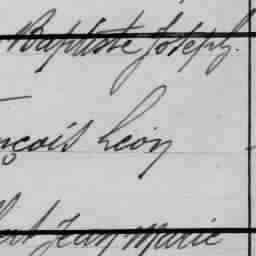 Baptiste Joseph.
nçois Léon
bert Jean Marie